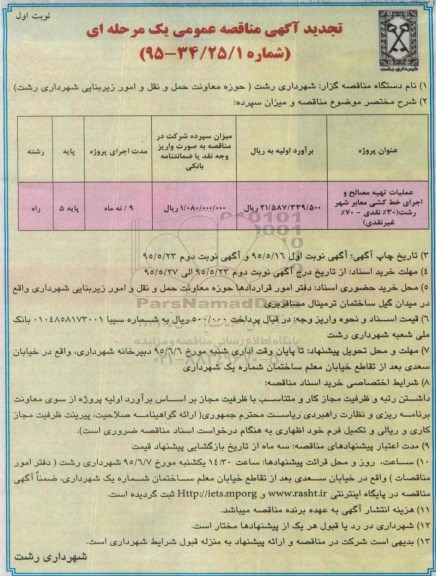 نوبت اول
تجدید آگهی مناقصه عمومی یک مرحله ای
(شماره ۹۵-۳۴/۲۵/۱)
شهرداری رشت
۱) نام دستگاه مناقصه گزار: شهرداری رشت ( حوزه معاونت حمل و نقل و امور زیربنایی شهرداری رشت)
۲) شرح مختصر موضوع مناقصه و میزان سپرده:
عنوان پروژه | برآورد اولیه به ریال | میزان سپرده شرکت در مناقصه به صورت واریز وجه نقد یا ضمانتنامه بانکی | مدت اجرای پروژه | پایه | رشته
عملیات تهیه مصالح و اجرای خط کشی معابر شهر رشت(۳۰٪ نقدی - ۷۰٪ غیرنقدی) | ۲۱/۵۸۷/۳۳۹/۵۰۰ ریال | ۱/۰۸۰/۰۰۰/۰۰۰ ریال | ۹ / نه ماه | پایه ۵ | راه
۳) تاریخ چاپ آگهی: آگهی نوبت اول ۹۵/۵/۱۶ و آگهی نوبت دوم ۹۵/۵/۲۳
۴) مهلت خرید اسناد: از تاریخ درج آگهی نوبت دوم ۹۵/۵/۲۳ الی ۹۵/۵/۲۷
۵) محل خرید حضوری اسناد: دفتر امور قراردادها حوزه معاونت حمل و نقل و امور زیربنایی شهرداری واقع
در میدان گیل ساختمان ترمینال مسافربری
۶) قیمت اسناد و نحوه واریز وجه: در قبال پرداخت ۵۰۰/۰۰۰ ریال به شماره سیبا ۰۱۰۴۸۵۸۱۷۳۰۰۱ بانک
ملی شعبه شهرداری رشت
۷) مهلت و محل تحویل پیشنهاد: تا پایان وقت اداری شنبه مورخ ۹۵/۶/۶ دبیرخانه شهرداری، واقع در خیابان
سعدی بعد از تقاطع خیابان معلم ساختمان شماره یک شهرداری
۸) شرایط اختصاصی خرید اسناد مناقصه:
داشتن رتبه و ظرفیت مجاز کار و متناسب با ظرفیت مجاز بر اساس برآورد اولیه پروژه از سوی معاونت
برنامه ریزی و نظارت راهبردی ریاست محترم جمهوری( ارائه گواهینامه صلاحیت، پیرینت ظرفیت مجاز
کاری و ریالی و تکمیل فرم خود اظهاری به هنگام درخواست اسناد مناقصه ضروری است).
۹) مدت اعتبار پیشنهادهای مناقصه: سه ماه از تاریخ بازگشایی پیشنهاد قیمت
۱۰) ساعت، روز و محل قرائت پیشنهادها: ساعت ۱۴:۳۰ یکشنبه مورخ ۹۵/۶/۷ شهرداری رشت ( دفتر امور
مناقصات ) واقع در خیابان سعدی بعد از تقاطع خیابان معلم ساختمان شماره یک شهرداری، ضمناً آگهی
مناقصه در پایگاه اینترنتی www.rasht.ir و Http://iets.mporg ثبت گردیده است.
۱۱) هزینه انتشار آگهی به عهده برنده مناقصه میباشد.
۱۲) شهرداری در رد یا قبول هر یک از پیشنهادها مختار است.
۱۳) بدیهی است شرکت در مناقصه و ارائه پیشنهاد به منزله قبول شرایط شهرداری است.
شهرداری رشت